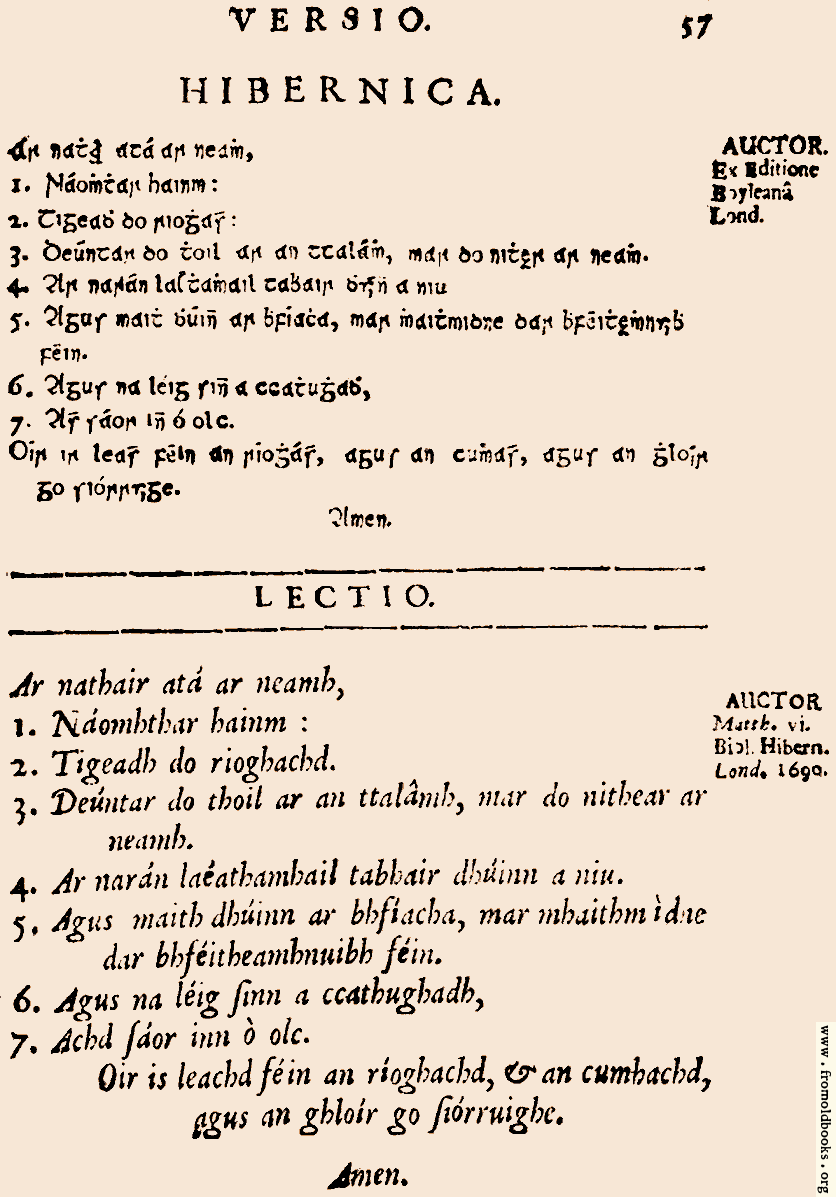 VERSIO. 57
HIBERNICA.
Ar naṫair atá ar neaṁ,
AUCTOR.
Ex Editione
Boyleanâ
Lond.
1. Náoṁṫar hainm :
2. Tigeaḋ do rioġaċd :
3. Deúntar do ṫoil ar an ttalâṁ, mar do niṫear ar neaṁ.
4. Ar narán laéaṫaṁail taḃair ḋúinn a niu
5. Agus maiṫ ḋúinn ar ḃfíaċa, mar ṁaiṫmidne dar ḃféiṫeaṁnuiḃ
féin.
6. Agus na léig sinn a ccaṫuġaḋ,
7. Aċd sáor inn ó olc.
Oír is leaċd féin an ríoġaċd, agus an cuṁaċd, agus an ġloír
go síorruiġe.
Amen.
LECTIO.
Ar nathair atá ar neamh,
AUCTOR
Matth. vi.
Bibl. Hibern.
Lond. 1690.
1. Náomhthar hainm :
2. Tigeadh do rioghachd.
3. Deúntar do thoil ar an ttalâmh, mar do nithear ar
neamh.
4. Ar narán laéathamhail tabhair dhúinn a niu.
5. Agus maith dhúinn ar bhfíacha, mar mhaithmìdne
dar bhféitheamhnuibh féin.
6. Agus na léig ſinn a ccathughadh,
7. Achd ſáor inn ò olc.
Oir is leachd féin an ríoghachd, & an cumhachd,
agus an ghloír go ſiórruighe.
Amen.
www.fromoldbooks.org